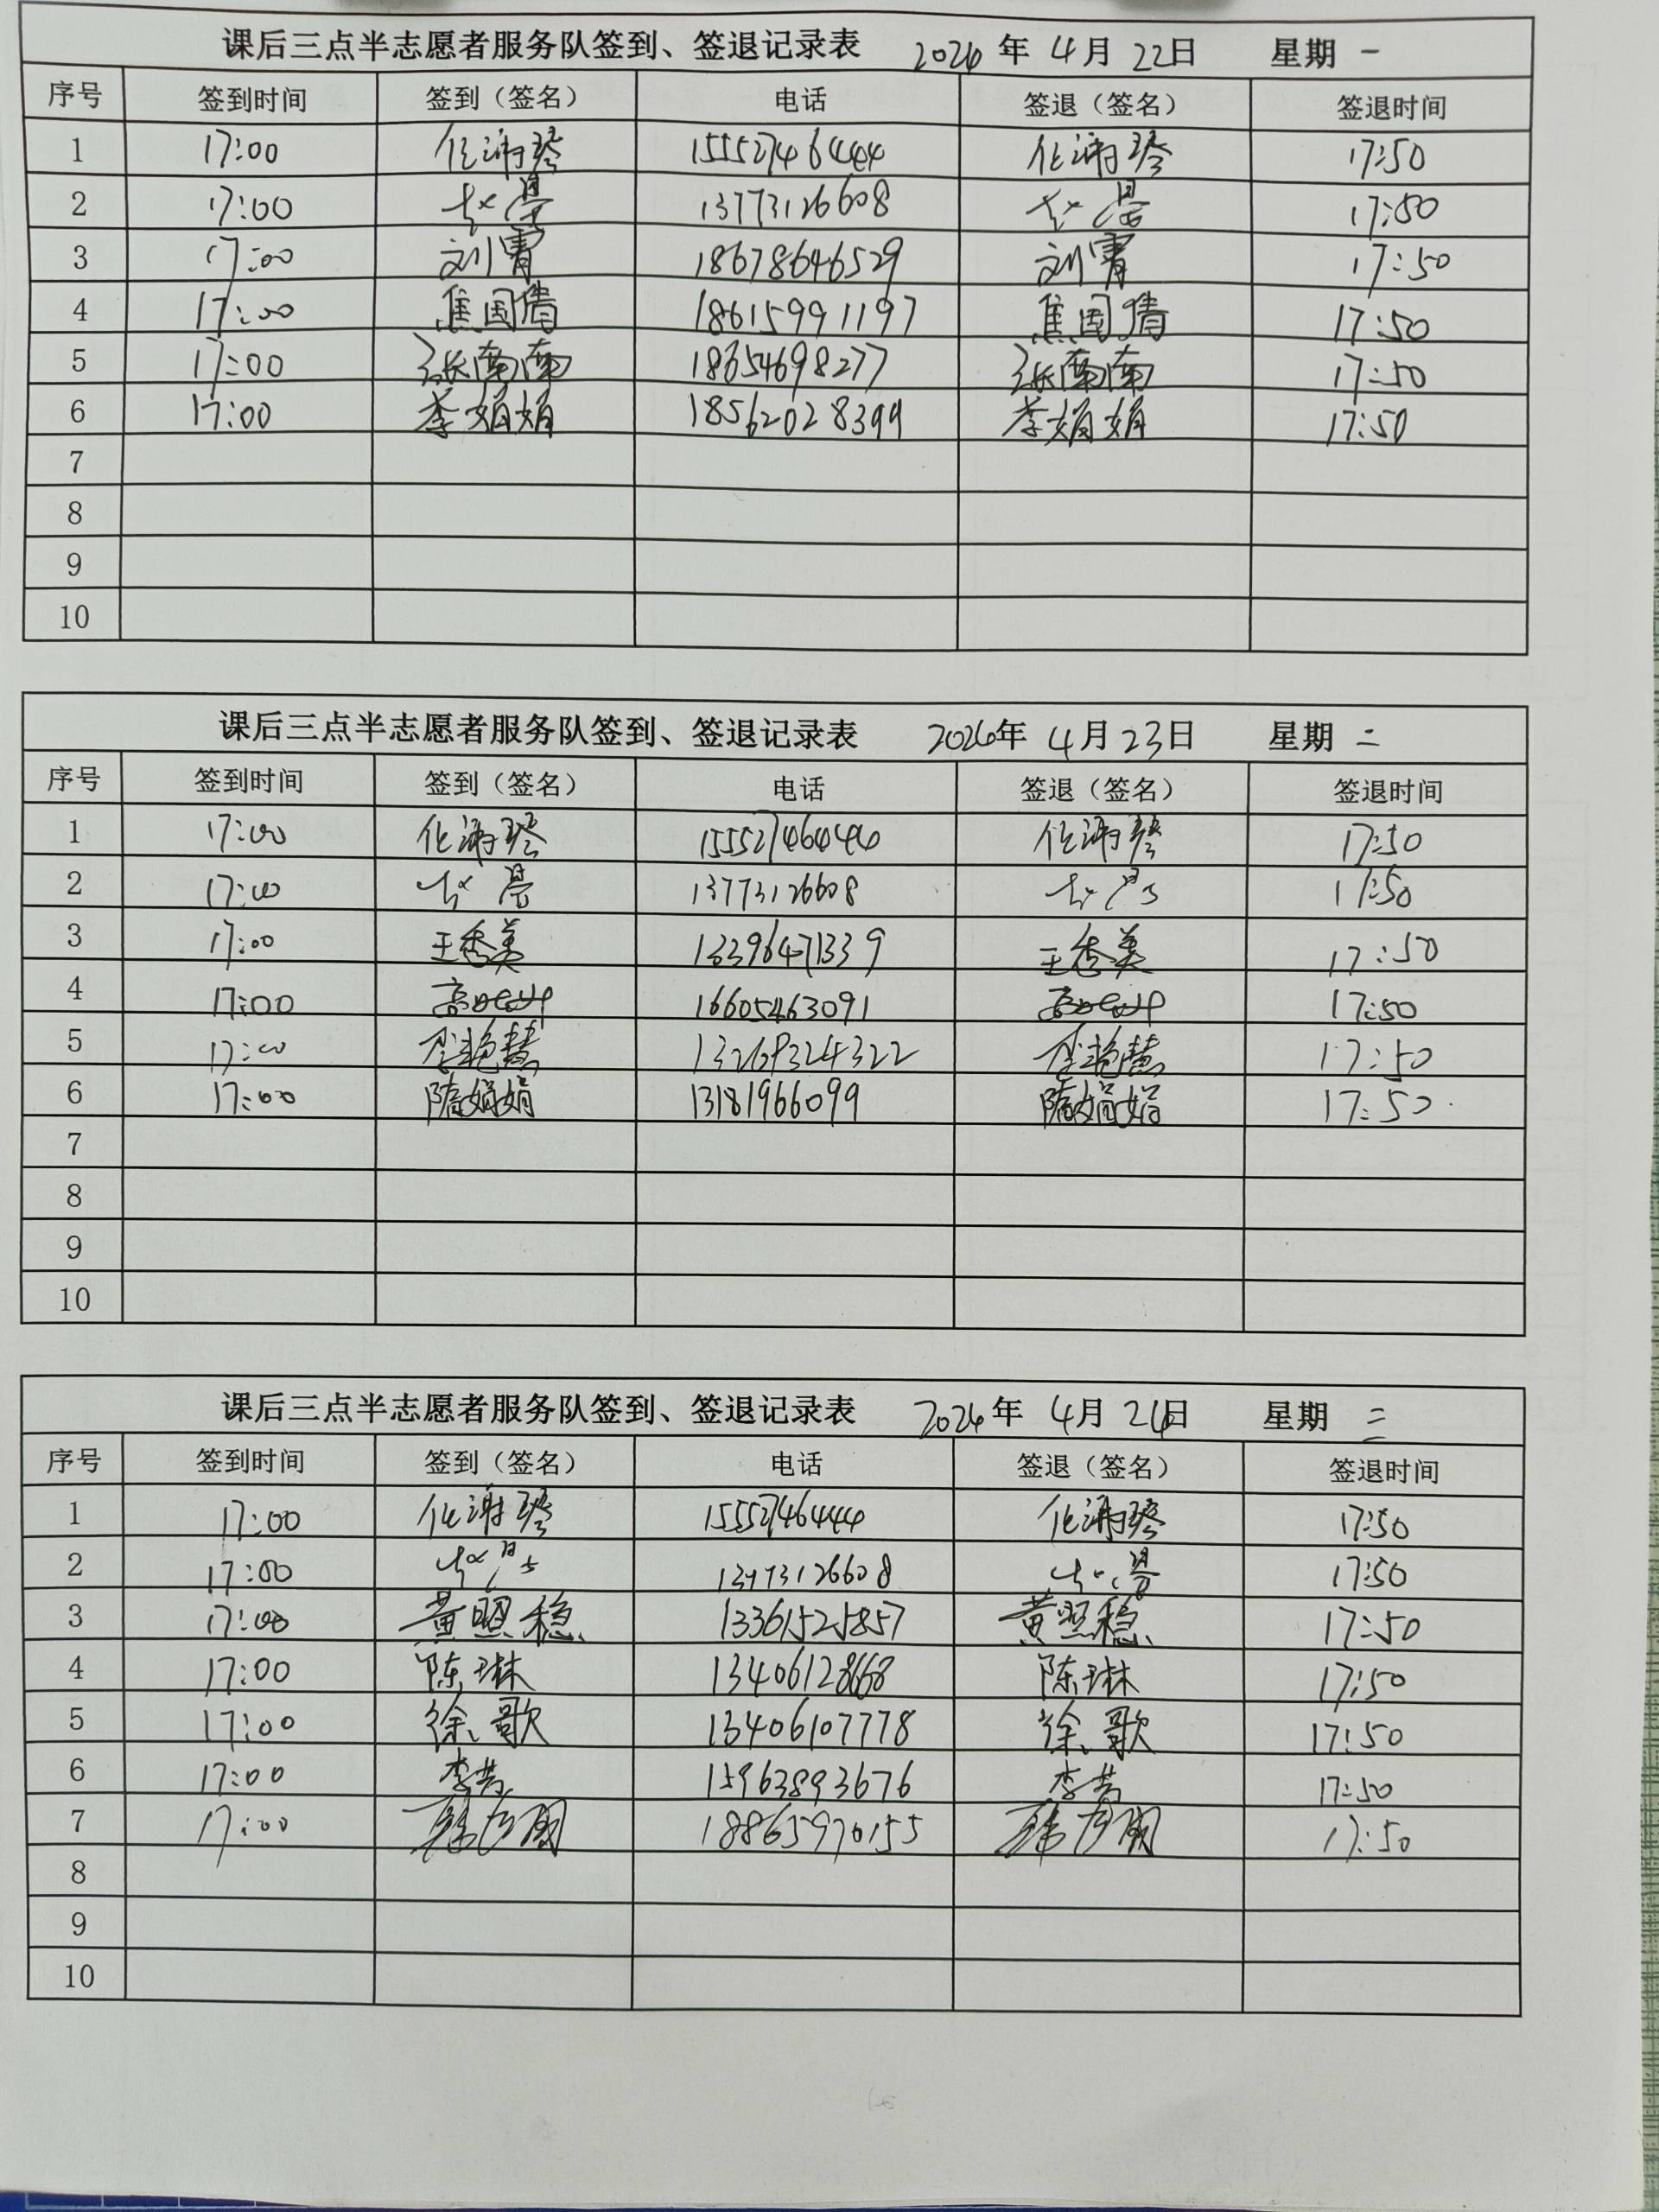 课后三点半志愿者服务队签到、签退记录表 2024年 4月 22日 星期 一
序号 签到时间 签到（签名） 电话 签退（签名） 签退时间
1 17:00 15552746444 17:50
2 17:00 赵 13773126608 赵 17:50
3 17:00 刘霄 18678646529 刘霄 17:50
4 17:00 焦国倩 18615991197 焦国倩 17:50
5 17:00 张南南 18654698277 张南南 17:50
6 17:00 李娟娟 18562028399 李娟娟 17:50
7
8
9
10
课后三点半志愿者服务队签到、签退记录表 2024年 4月 23日 星期 二
序号 签到时间 签到（签名） 电话 签退（签名） 签退时间
1 17:00 15552746444 17:50
2 17:00 赵 13773126608 赵 17:50
3 17:00 王秀美 13396471339 王秀美 17:50
4 17:00 16605463091 17:50
5 17:00 李艳慧 李艳慧 17:50
6 17:00 隋娟娟 13181966099 隋娟娟 17:50
7
8
9
10
课后三点半志愿者服务队签到、签退记录表 2024年 4月 24日 星期 三
序号 签到时间 签到（签名） 电话 签退（签名） 签退时间
1 17:00 15552746444 17:50
2 17:00 赵 13773126608 赵 17:50
3 17:00 黄照稳 13361525857 黄照稳 17:50
4 17:00 陈琳 13406128668 陈琳 17:50
5 17:00 徐歌 13406107778 徐歌 17:50
6 17:00 李芸 15963893676 李芸 17:50
7 17:00 18865970155 17:50
8
9
10